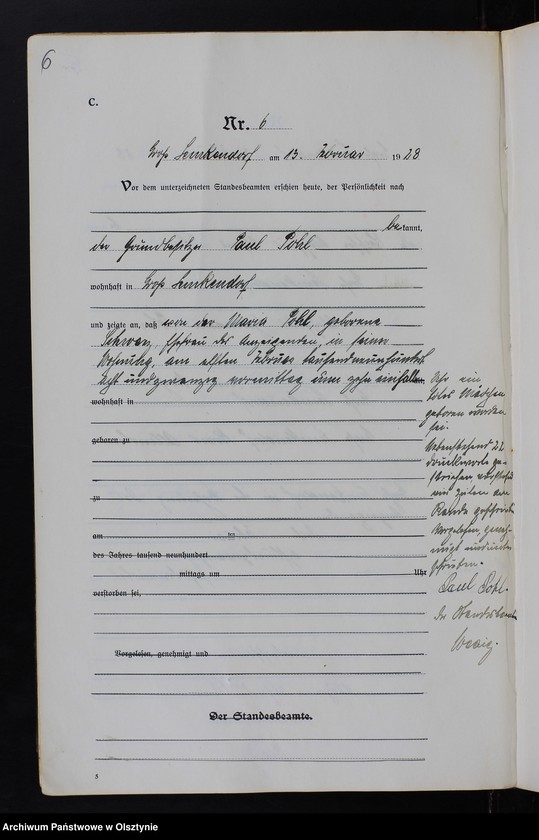 6
C.
Nr. 6
Groß Lemkendorf am 13. Februar 1928
Vor dem unterzeichneten Standesbeamten erschien heute, der Persönlichkeit nach
bekannt,
der Grundbesitzer Paul Pohl
wohnhaft in Groß Lemkendorf
und zeigte an, daß von der Maria Pohl, geborene
Ehefrau des Anzeigenden, in seiner
Wohnung, am elften Februar tausendneunhundert
acht und zwanzig vormittag um zehn einhalb
wohnhaft in
geboren zu
zu
am ten
des Jahres tausend neunhundert
mittags um Uhr
verstorben sei,
Vorgelesen, genehmigt und
Der Standesbeamte.
5
Uhr ein
totes Mädchen
geboren worden
sei.
Nebenstehend 22
Druckworte ge-
strichen,
am Rande
Vorgelesen, geneh-
migt und unter-
schrieben.
Paul Pohl.
Der Standesbeamte
Archiwum Państwowe w Olsztynie